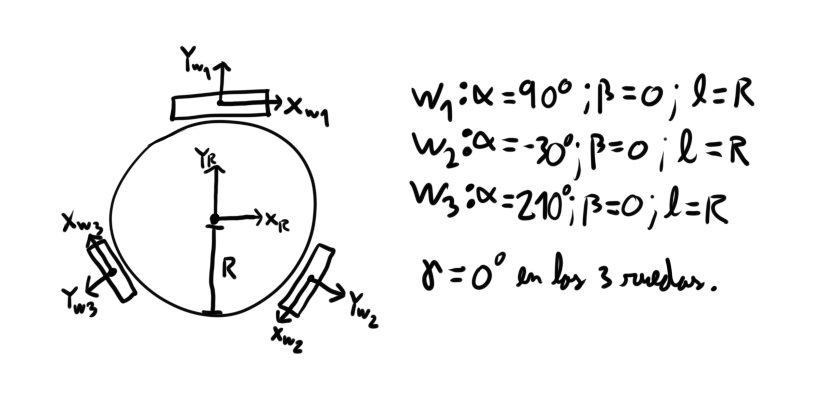 Yw1
Xw1
YR
XR
R
Xw3
Yw3
Yw2
Xw2
W1:α=90°;β=0;l=R
W2:α=-30°;β=0;l=R
W3:α=210°;β=0;l=R
γ=0° en las 3 ruedas.